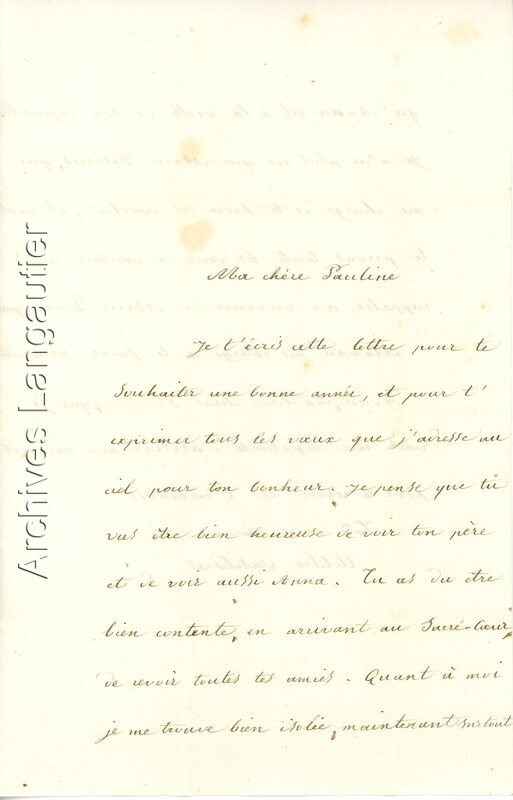 Ma chère Pauline
Je t'écris cette lettre pour te
souhaiter une bonne année, et pour t'
exprimer tous les vœux que j'adresse au
ciel pour ton bonheur. Je pense que tu
vas être bien heureuse de voir ton père
et de voir aussi Anna. Tu as du etre
bien contente, en arrivant au Sacré-Cœur,
de revoir toutes tes amies. Quant à moi
je me trouve bien isolée, maintenant surtout
Archives Langautier